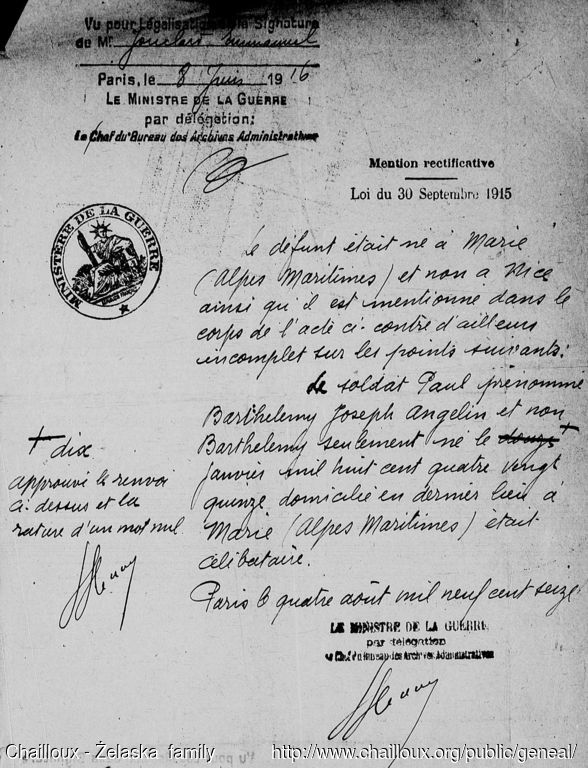 Vu pour Légalisation de la Signature
de Mr Jouclard Emmanuel
Paris, le 8 Juin 1916
LE MINISTRE DE LA GUERRE
par délégation:
Le Chef du Bureau des Archives Administratives
Mention rectificative
Loi du 30 Septembre 1915
MINISTÈRE DE LA GUERRE
Le défunt était né à Marie
(Alpes Maritimes) et non à Nice
ainsi qu'il est mentionné dans le
corps de l'acte ci-contre d'ailleurs
incomplet sur les points suivants:
Le soldat Paul prénommé
Barthelemy Joseph Angelin et non
Barthelemy seulement né le douze +
janvier mil huit cent quatre vingt
quinze domicilié en dernier lieu à
Marie (Alpes Maritimes) était
célibataire.
+ dix
approuvé le renvoi
ci-dessus et la
rature d'un mot nul
Paris le quatre août mil neuf cent seize
LE MINISTRE DE LA GUERRE
par délégation
Le Chef du Bureau des Archives Administratives
Chailloux - Żelaska family
http://www.chailloux.org/public/geneal/